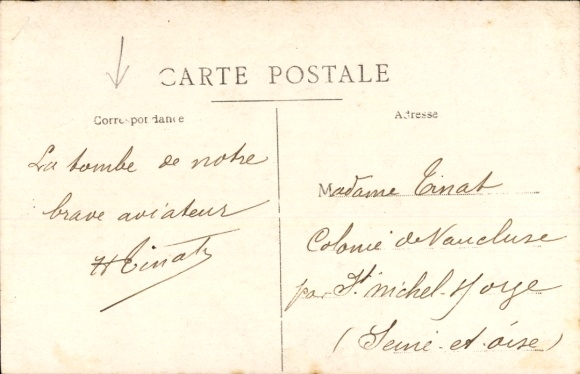 CARTE POSTALE
Correspondance
Adresse
La tombe de notre
brave aviateur
H Tinat
Madame Tinat
Colonie de Vaucluse
par St Michel s/ Orge
(Seine-et-oise)